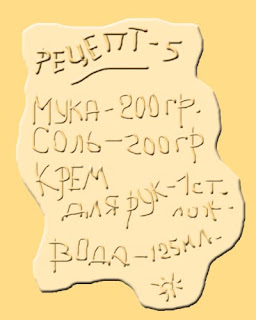 РЕЦЕПТ-5
МУКА-200гр.
СОЛЬ-200гр
КРЕМ
ДЛЯ РУК-1ст.
лож.
ВОДА-125мл.